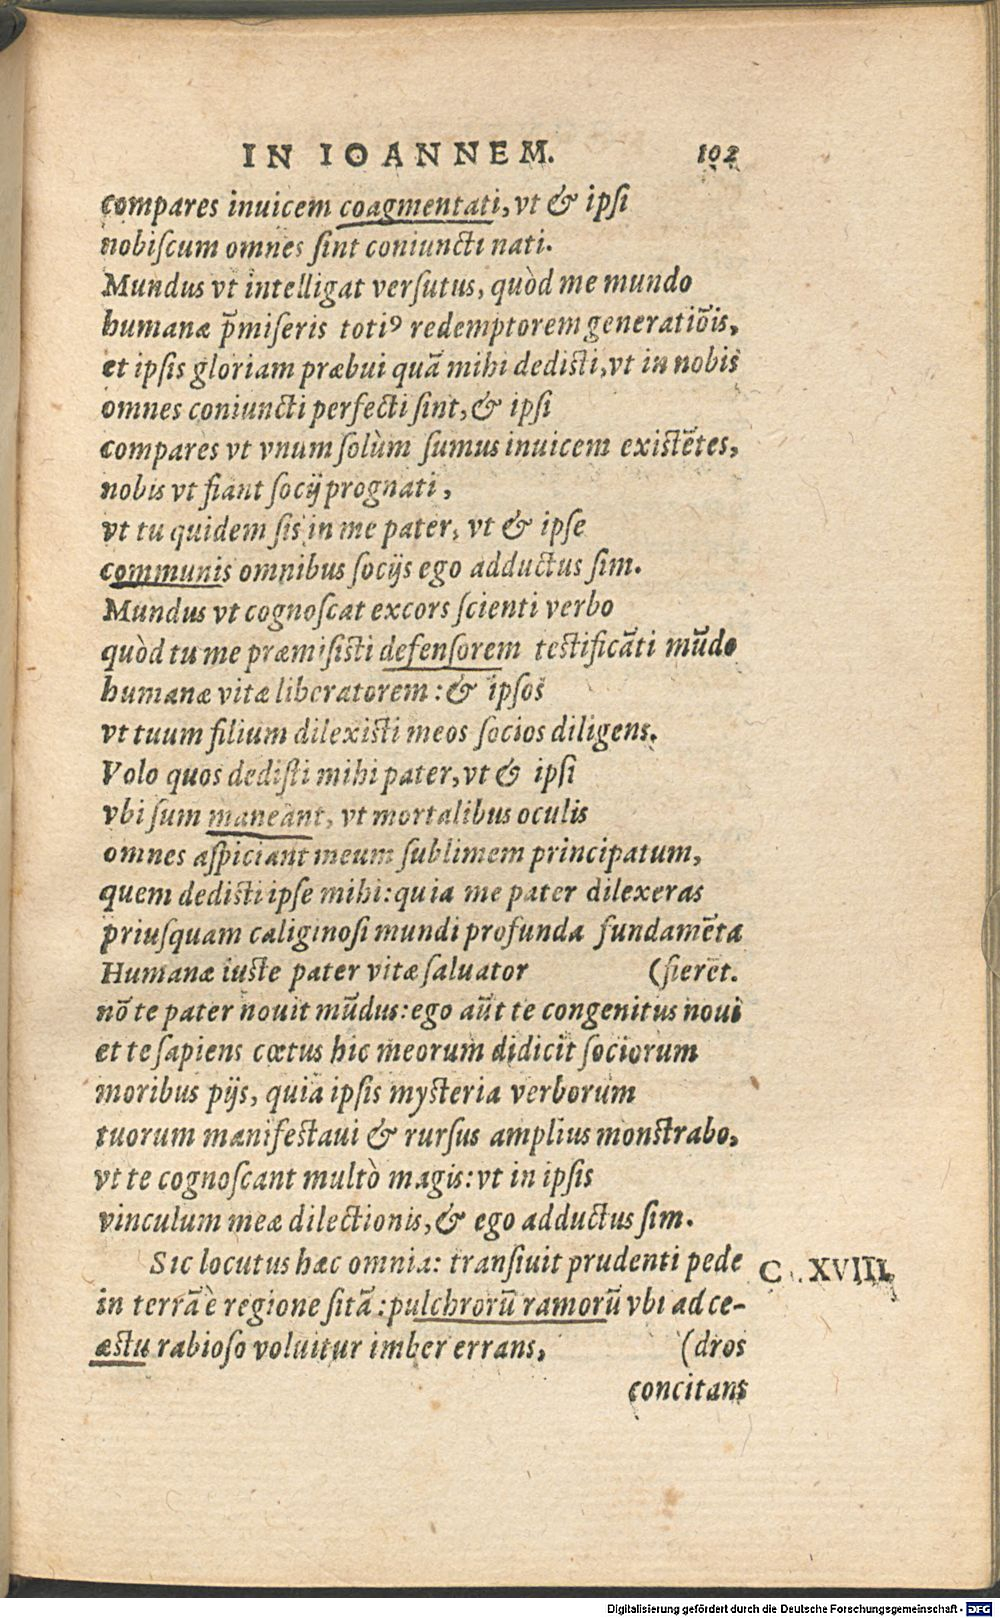 IN IOANNEM. 102
compares inuicem coagmentati, vt & ipsi
nobiscum omnes sint coniuncti nati.
Mundus vt intelligat versutus, quòd me mundo
humanæ p̄miseris totiꝰ redemptorem generatiōis,
et ipsis gloriam præbui quā mihi dedisti, vt in nobis
omnes coniuncti perfecti sint, & ipsi
compares vt vnum solùm sumus inuicem existētes,
nobis vt fiant socij prognati,
vt tu quidem sis in me pater, vt & ipse
communis omnibus socijs ego adductus sim.
Mundus vt cognoscat excors scienti verbo
quòd tu me præmisisti defensorem testificāti mūdo
humanæ vitæ liberatorem: & ipsos
vt tuum filium dilexisti meos socios diligens.
Volo quos dedisti mihi pater, vt & ipsi
vbi sum maneant, vt mortalibus oculis
omnes aspiciant meum sublimem principatum,
quem dedisti ipse mihi: quia me pater dilexeras
priusquam caliginosi mundi profunda fundamēta
Humanæ iuste pater vitæ saluator (fierēt.
nō te pater nouit mūdus: ego aūt te congenitus noui
et te sapiens cœtus hic meorum didicit sociorum
moribus pijs, quia ipsis mysteria verborum
tuorum manifestaui & rursus amplius monstrabo,
vt te cognoscant multò magis: vt in ipsis
vinculum meæ dilectionis, & ego adductus sim.
Sic locutus hæc omnia: transiuit prudenti pede C. XVIII.
in terrā è regione sitā: pulchrorū ramorū vbi ad ce-
æstu rabioso voluitur imber errans, (dros
concitans
Digitalisierung gefördert durch die Deutsche Forschungsgemeinschaft - DFG